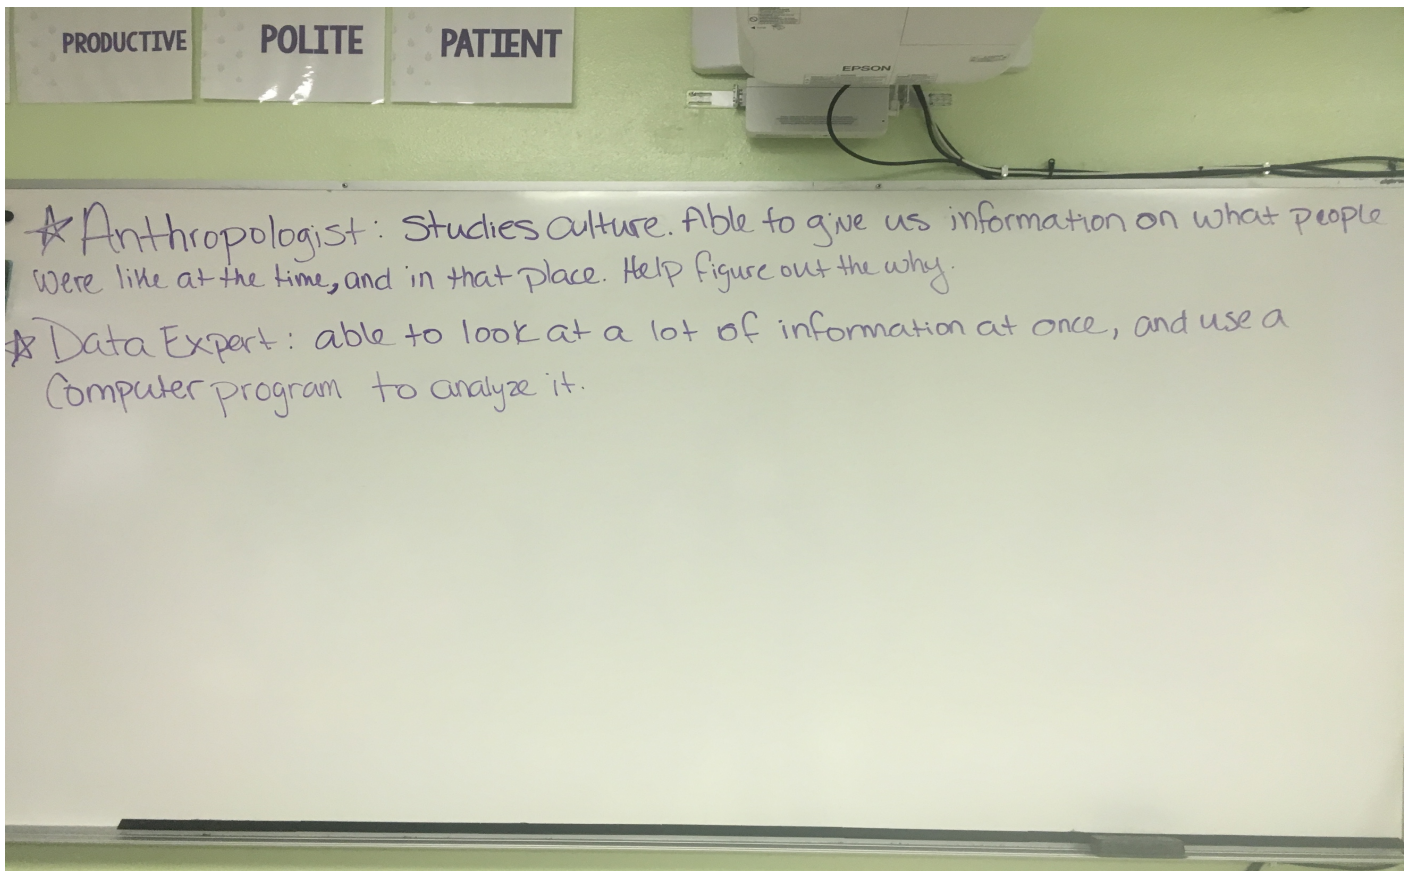 PRODUCTIVE POLITE PATIENT
EPSON
☆ Anthropologist: Studies Culture. Able to give us information on what people
were like at the time, and in that place. Help figure out the why.
☆ Data Expert: able to look at a lot of information at once, and use a
Computer program to analyze it.